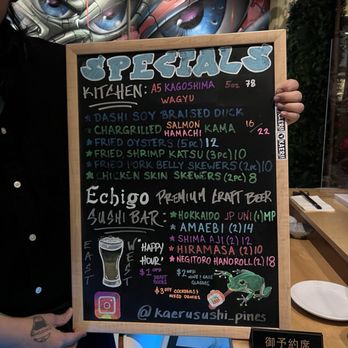 SPECIALS
KITCHEN: A5 KAGOSHIMA 5oz 78
WAGYU
★ DASHI SOY BRAISED DUCK
★ CHARGRILLED SALMON HAMACHI KAMA 16/22
★ FRIED OYSTERS (5pc) 12
★ FRIED SHRIMP KATSU (3pc) 10
★ FRIED PORK BELLY SKEWERS (2pc) 10
★ CHICKEN SKIN SKEWERS (2pc) 8
Echigo PREMIUM CRAFT BEER
SUSHI BAR: ★ HOKKAIDO JP UNI (1) MP
★ AMAEBI (2) 14
★ SHIMA AJI (2) 12
★ HIRAMASA (2) 10
★ NEGITORO HANDROLL (2) 18
EAST
WEST
"HAPPY HOUR"
$1 OFF DRAFT BEERS
$2 OFF WINE & SAKE GLASSES
$3 OFF COCKTAILS & MIXED DRINKS
@kaerusushi_pines
御予約席